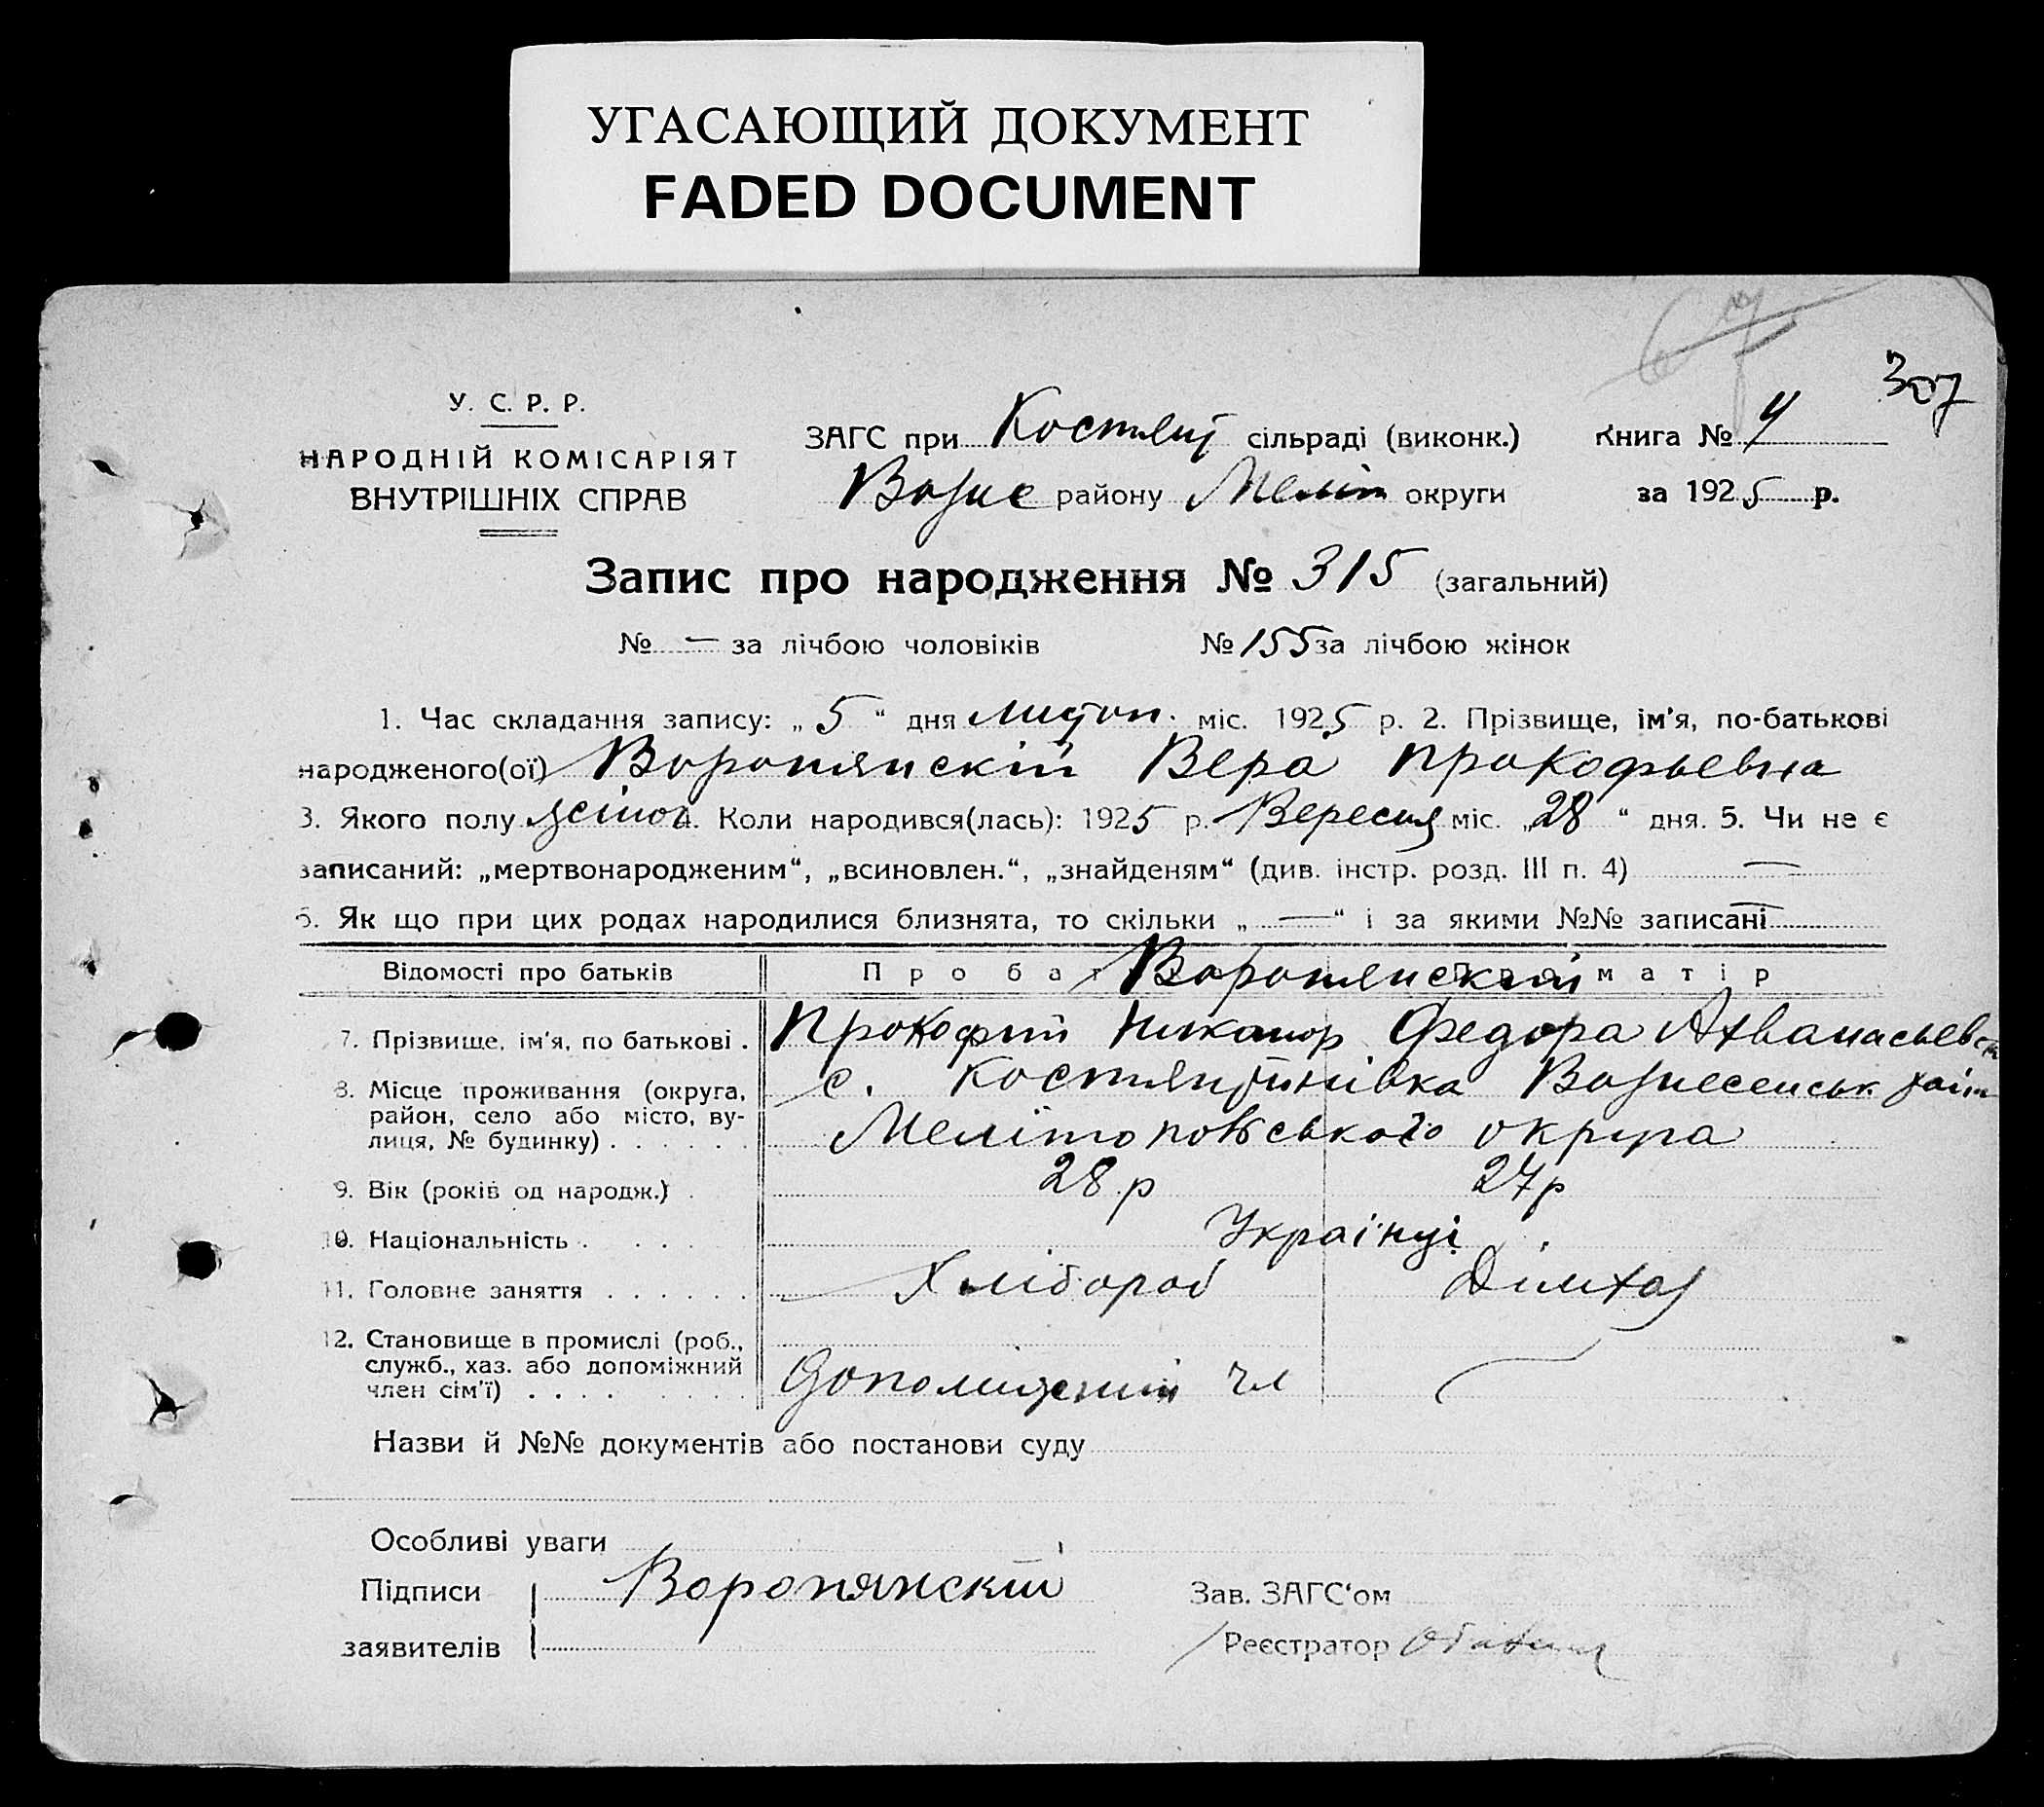 УГАСАЮЩИЙ ДОКУМЕНТ
FADED DOCUMENT
67
307
У. С. Р. Р.
НАРОДНІЙ КОМІСАРІЯТ
ВНУТРІШНІХ СПРАВ
ЗАГС при Костянт сільраді (виконк.) Книга № 4
Вознес району Меліт округи за 1925 р.
Запис про народження № 315 (загальний)
№ — за лічбою чоловіків № 155 за лічбою жінок
1. Час складання запису: „ 5 “ дня листоп. міс. 1925 р. 2. Прізвище, ім'я, по-батькові
народженого(ої) Воропянскій Вера Прокофьевна
3. Якого полу жіноч 4. Коли народився(лась): 1925 р. Вересня міс. „28“ дня. 5. Чи не є
записаний: „мертвонародженим“, „всиновлен.“, „знайденям“ (див. інстр. розд. III п. 4) —
6. Як що при цих родах народилися близнята, то скільки „ — “ і за якими №№ записані —
Відомості про батьків Про бат Воропянскій матір
7. Прізвище, ім'я, по батькові . Прокофий Никанор Федора Афанасьев
8. Місце проживання (округа, с. Костянтинівка Вознесенськ район
район, село або місто, ву-
лиця, № будинку) . . . . . . Мелітопольського округа
9. Вік (років од народж.) . 28 р 27 р
10. Національність . . . . Українці
11. Головне заняття . . . . . . Хлібороб
12. Становище в промислі (роб.,
служб., хаз. або допоміжний
член сім'ї) . . . . Допоміжний чл —
Назви й №№ документів або постанови суду
Особливі уваги
Підписи Воропянскій Зав. ЗАГС'ом
заявителів Реєстратор